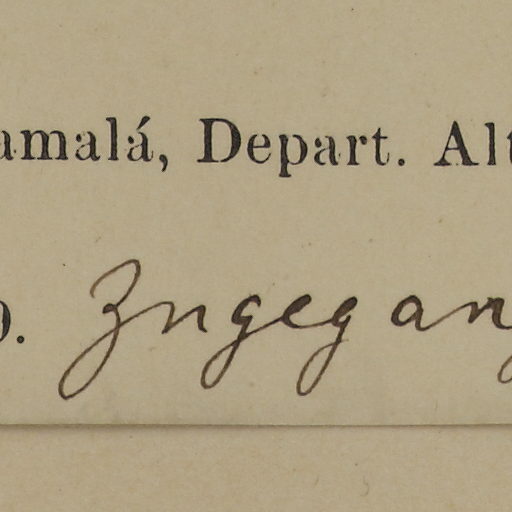 amalá, Depart. Alt
). Zngegang